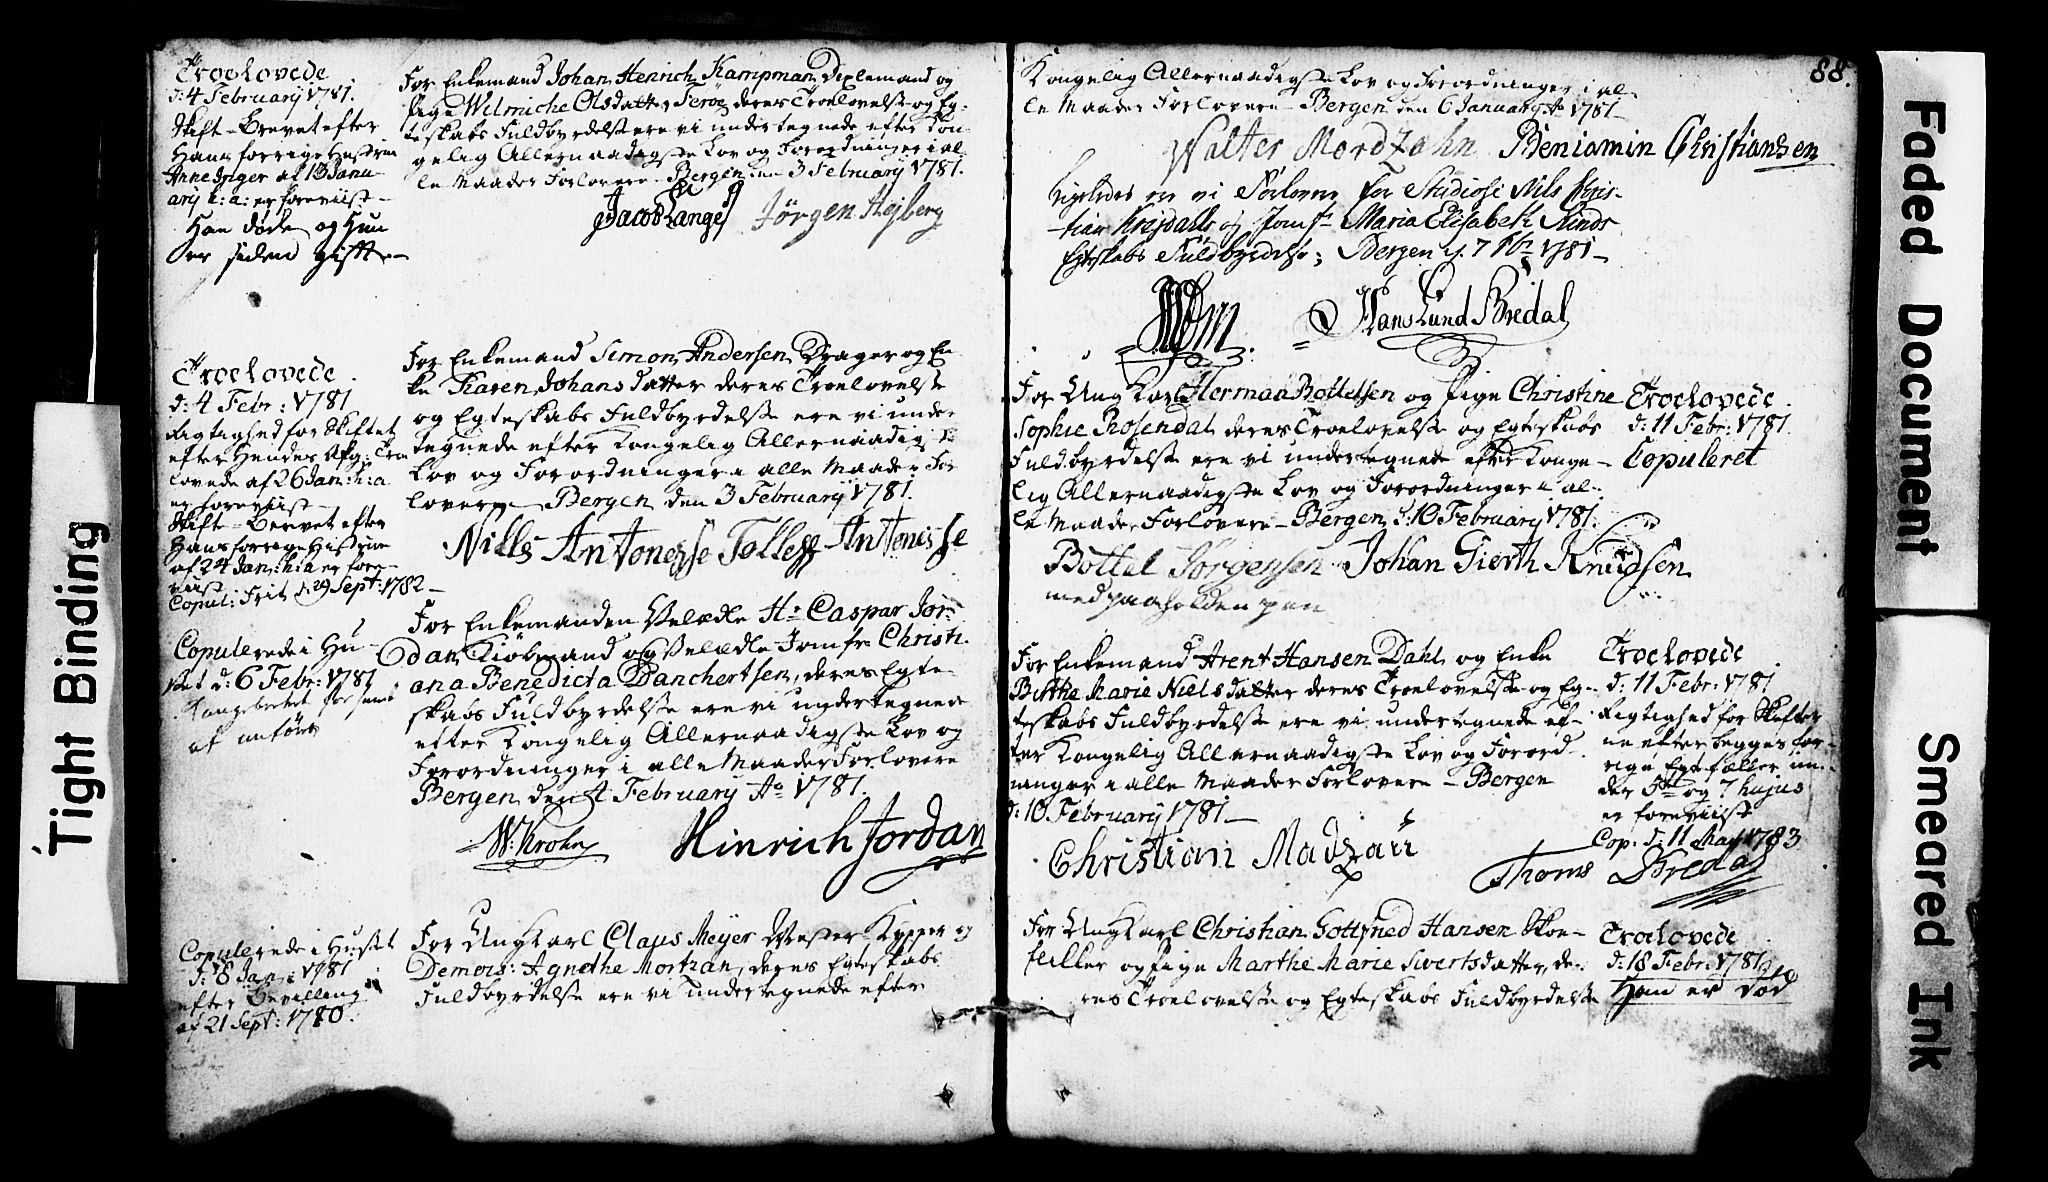 Troelovede
d: 4 February 1781.
Skift-Brevet efter
Hans forrige Hustrue
Anne Inger af 13 Janu-
ary h: a: er foreviist -
Han døde og Hun
er siden gift -
For Enkemand Johan Henrich Kampman Diplemand og
Pige Wilmiche Olsdatter Ferøe deres Troelovelse og Eg-
teskabs Fuldbyrdelse ere vi undertegnede efter Kon-
gelig Allernaadigste Lov og Forordninger i al-
le Maader Forlovere - Bergen den 3 February 1781.
Jacob Lange
Jørgen Hejberg
Troelovede
d: 4 Febr: 1781
Rigtighed for Skiftet
efter Hendes Afg: Troe
lovede af 26 Jan: h: a
er foreviist -
Skift-Brevet efter
Hans forrige Hustrue
af 24 Jan: h: a er fore-
viist
Copul: Frit d 29 Sept: 1782 -
For Enkemand Simon Andersen Drager og En-
ke Karen Johansdatter deres Troelovelse
og Egteskabs Fuldbyrdelse ere vi under
tegnede efter Kongelig Allernaadigste
Lov og Forordninger i alle Maader For
lovere - Bergen den 3 February 1781.
Niells Antonesse Tolless Antonesse
Copulerede i Hu-
set d: 6 Febr: 1781
For Enkemanden Velædle Hr Caspar Jor-
dan Kiøbmand og Velædle Jomfr Christi-
ana Benedicta Danchertsen, deres Egte-
skabs Fuldbyrdelse ere vi undertegnede
efter Kongelig Allernaadigste Lov og
Forordninger i alle Maader Forlovere
Bergen den 4 February Ao 1781.
W: Krohn
Hinrich Jordan
Copulerede i Huset
d: 8 Jan: 1781
efter Bevilling
af 21 Sept: 1780.
For Ung Karl Claus Meyer Vester Kypper og
Demois: Agnethe Mortzan, deres Egteskabs
Fuldbyrdelse ere vi undertegnede efter
88.
Kongelig Allernaadigste Lov og Forordninger i al-
le Maader Forlovere - Bergen den 6 January Ao 1781 -
Walter Mordzahn Beniamin Christiansen
Ligeledes er vi Forlovere for Studiosi Nils Chris-
tian Krigdalls og Jomfr Maria Elisabeth Rinds
Egteskabs Fuldbyrdelse; Bergen d. 7 Fbr 1781 -
Hans Lund Bredal
For Ung Karl Herman Bottelsen og Pige Christine
Sophie Rosendal deres Troelovelse og Egteskabs
Fuldbyrdelse ere vi undertegnede efter Konge-
lig Allernaadigste Lov og Forordninger i al-
le Maader Forlovere - Bergen d: 10 February 1781.
Bottel Jørgensen Johan Gierth Knudsen
med paaholden pen
Troelovede
d: 11 Febr: 1781.
Copuleret
For Enkemand Arent Hansen Dahl og Enke
Birthe Marie Nielsdatter deres Troelovelse og Eg-
teskabs Fuldbyrdelse ere vi undertegnede ef-
ter Kongelig Allernaadigste Lov og Forord-
ninger i alle Maader Forlovere - Bergen
d: 10 February 1781 -
Christian Madzau
Thoms Bredal
Troelovede
d: 11 Febr: 1781
Rigtighed for Skifter
ne efter begges for-
rige Egtefæller un-
der 5te og 7 hujus
er foreviist
Cop: d: 11 May 1783
For Ung Karl Christian Gottfried Hansen Skoe-
flikker og Pige Marthe Marie Sivertsdatter, de-
res Troelovelse og Egteskabs Fuldbyrdelse
Troelovede
d: 18 Febr: 1781
Han er død
Tight Binding
Faded Document
Smeared Ink